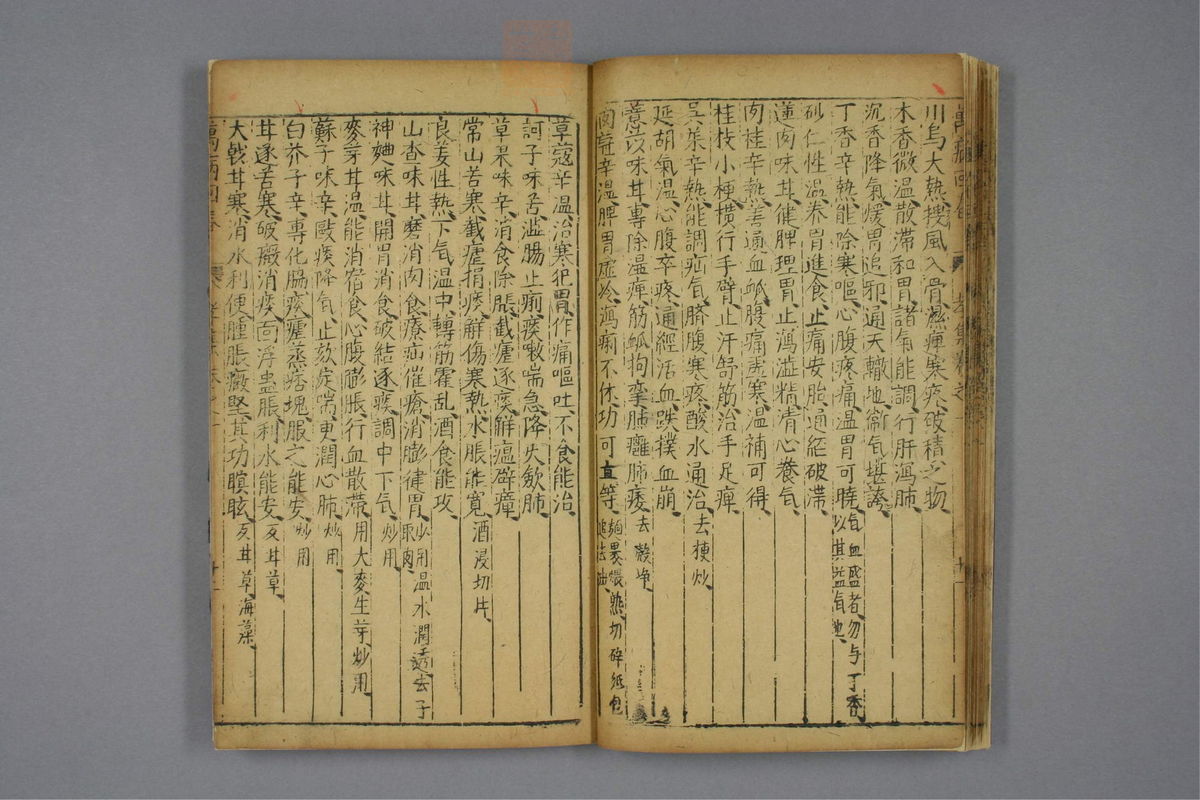 川烏大熱搜風入骨濕痺寒疼破積之物
木香微温散滯和胃諸氣能調行肝瀉肺
沉香降氣煖胃追邪通天徹地衛氣堪誇
丁香辛熱能除寒嘔心腹疼痛温胃可曉 氣血盛者勿与丁香以其益氣也
砂仁性温养胃進食止痛安胎通經破滯
蓮肉味甘健脾理胃止瀉澁精清心養气
肉桂辛熱善通血脉腹痛虗寒温補可得
桂枝小梗横行手臂止汗舒筋治手足痺
吳茱辛熱能調疝气臍腹寒疼酸水通治 去梗炒
延胡氣温心腹卒疼通經活血跌撲血崩
薏苡味甘專除温痺筋脉拘攣肺癰肺痿 去殼净
肉蔻辛温脾胃虛冷瀉痢不休功可直等 麵裹煨熟切碎紙包
草蔻辛温治寒犯胃作痛嘔吐不食能治
訶子味苦澁腸止痢痰嗽喘急降火歛肺
草果味辛消食除脹截瘧逐痰解瘟辟瘴
常山苦寒截瘧捐痰解傷寒熱水脹能寬 酒浸切片
良姜性熱下气温中轉筋霍乱酒食能攻
山查味甘磨消肉食療疝催瘡消膨健胃 少用温水潤透去子取肉
神麯味甘開胃消食破結逐痰調中下气 炒用
麥芽甘温能消宿食心腹膨脹行血散滯 用大麥生芽炒用
蘇子味辛敺痰降氣止欬定喘更潤心肺 炒用
白芥子辛專化脇痰瘧蒸痞塊服之能安 炒用
甘遂苦寒破癥消痰面浮蠱脹利水能安 反甘草
大戟甘寒消水利便腫脹癥堅其功瞑眩 反甘草海藻
萬病回春